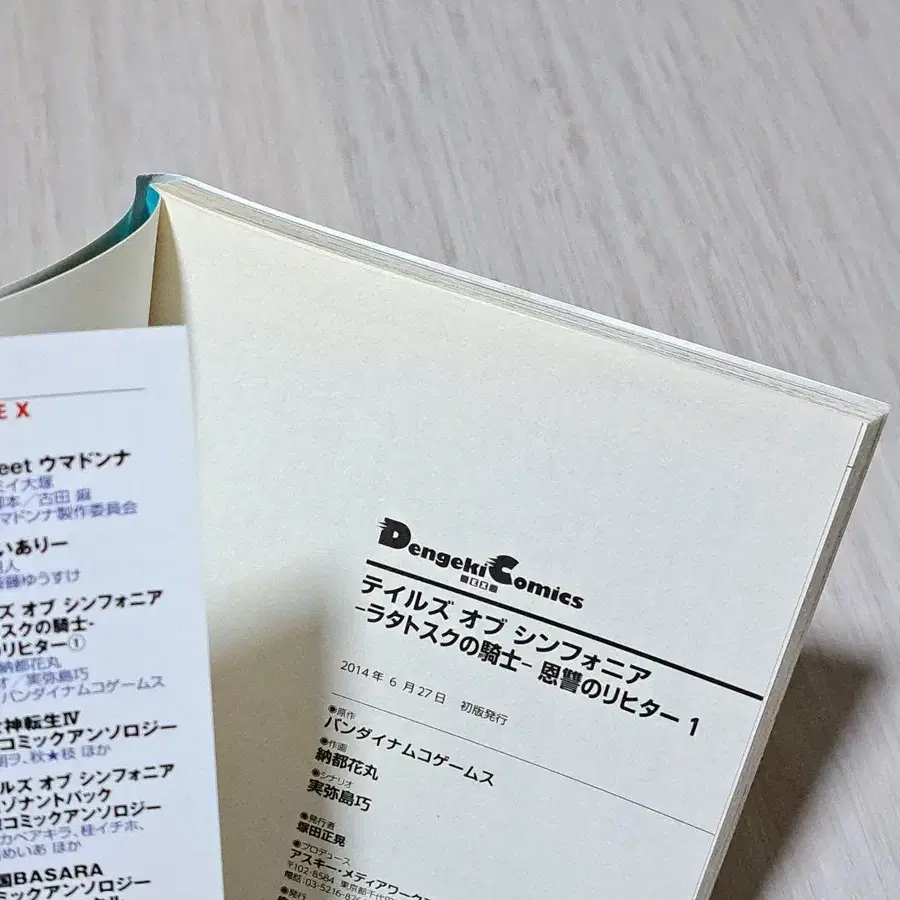 EX
eet ウマドンナ
ミイ大塚
脚本／古田 麻
マドンナ製作委員会
いありー
藤ゆうすけ
ズ オブ シンフォニア
トスクの騎士-
のリヒター①
納都花丸
オ／実弥島巧
バンダイナムコゲームス
神転生Ⅳ
コミックアンソロジー
秋★枝 ほか
ルズ オブ シンフォニア
ソナントパック
コミックアンソロジー
カベアキラ、桂イチホ、
めいあ ほか
国BASARA
ミックアンソロジー
Dengeki Comics
EX
テイルズ オブ シンフォニア
-ラタトスクの騎士- 恩讐のリヒター 1
2014年 6月27日 初版発行
●原作
バンダイナムコゲームス
●作画
納都花丸
●シナリオ
実弥島巧
●発行者
塚田正晃
●プロデュース
アスキー・メディアワーク
〒102-8584 東京都千代田
電話:03-5216-826
●発行